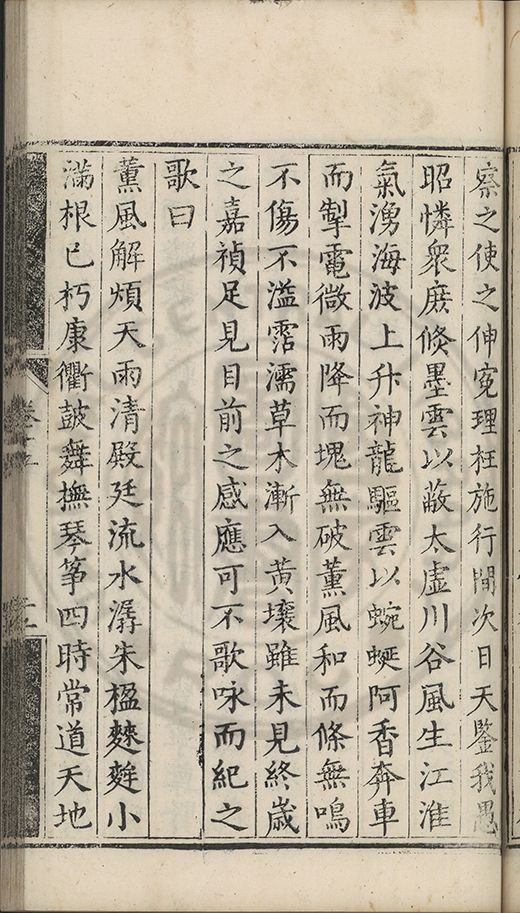 察之使之伸冤理枉施行間次日天鑒我愚
昭憐衆庶倐墨雲以蔽太虛川谷風生江淮
氣湧海波上升神龍驅雲以蜿蜒阿香奔車
而掣電微雨降而塊無破薰風和而條無鳴
不傷不溢霑濡草木漸入黃壤雖未見終歲
之嘉禎足見目前之感應可不歌咏而紀之
歌曰
薰風解煩天雨清殿廷流水潺朱楹麰麰小
滿根已朽康衢鼓舞撫琴箏四時常道天地